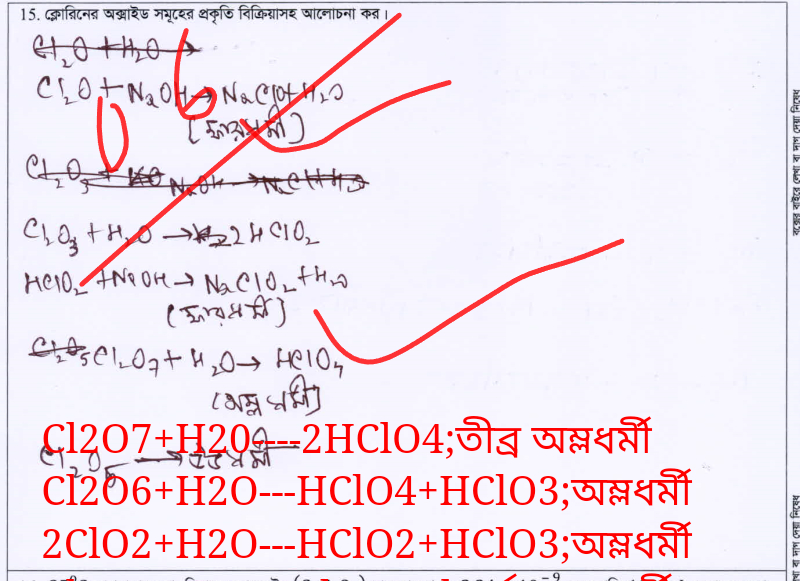 15. ক্লোরিনের অক্সাইড সমূহের প্রকৃতি বিক্রিয়াসহ আলোচনা কর।
Cl2O + H2O →
Cl2O + NaOH → NaClO + H2O
(ক্ষারধর্মী)
Cl2O3 + NaOH →
Cl2O3 + H2O → 2HClO2
HClO2 + NaOH → NaClO2 + H2O
(ক্ষারধর্মী)
Cl2O5 Cl2O7 + H2O → HClO4
(অম্লধর্মী)
Cl2O7+H20----2HClO4;তীব্র অম্লধর্মী
Cl2O6 → উভধর্মী
Cl2O6+H2O---HClO4+HClO3;অম্লধর্মী
2ClO2+H2O---HClO2+HClO3;অম্লধর্মী
বক্সের বাইরে লেখা বা দাগ দেয়া নিষেধ